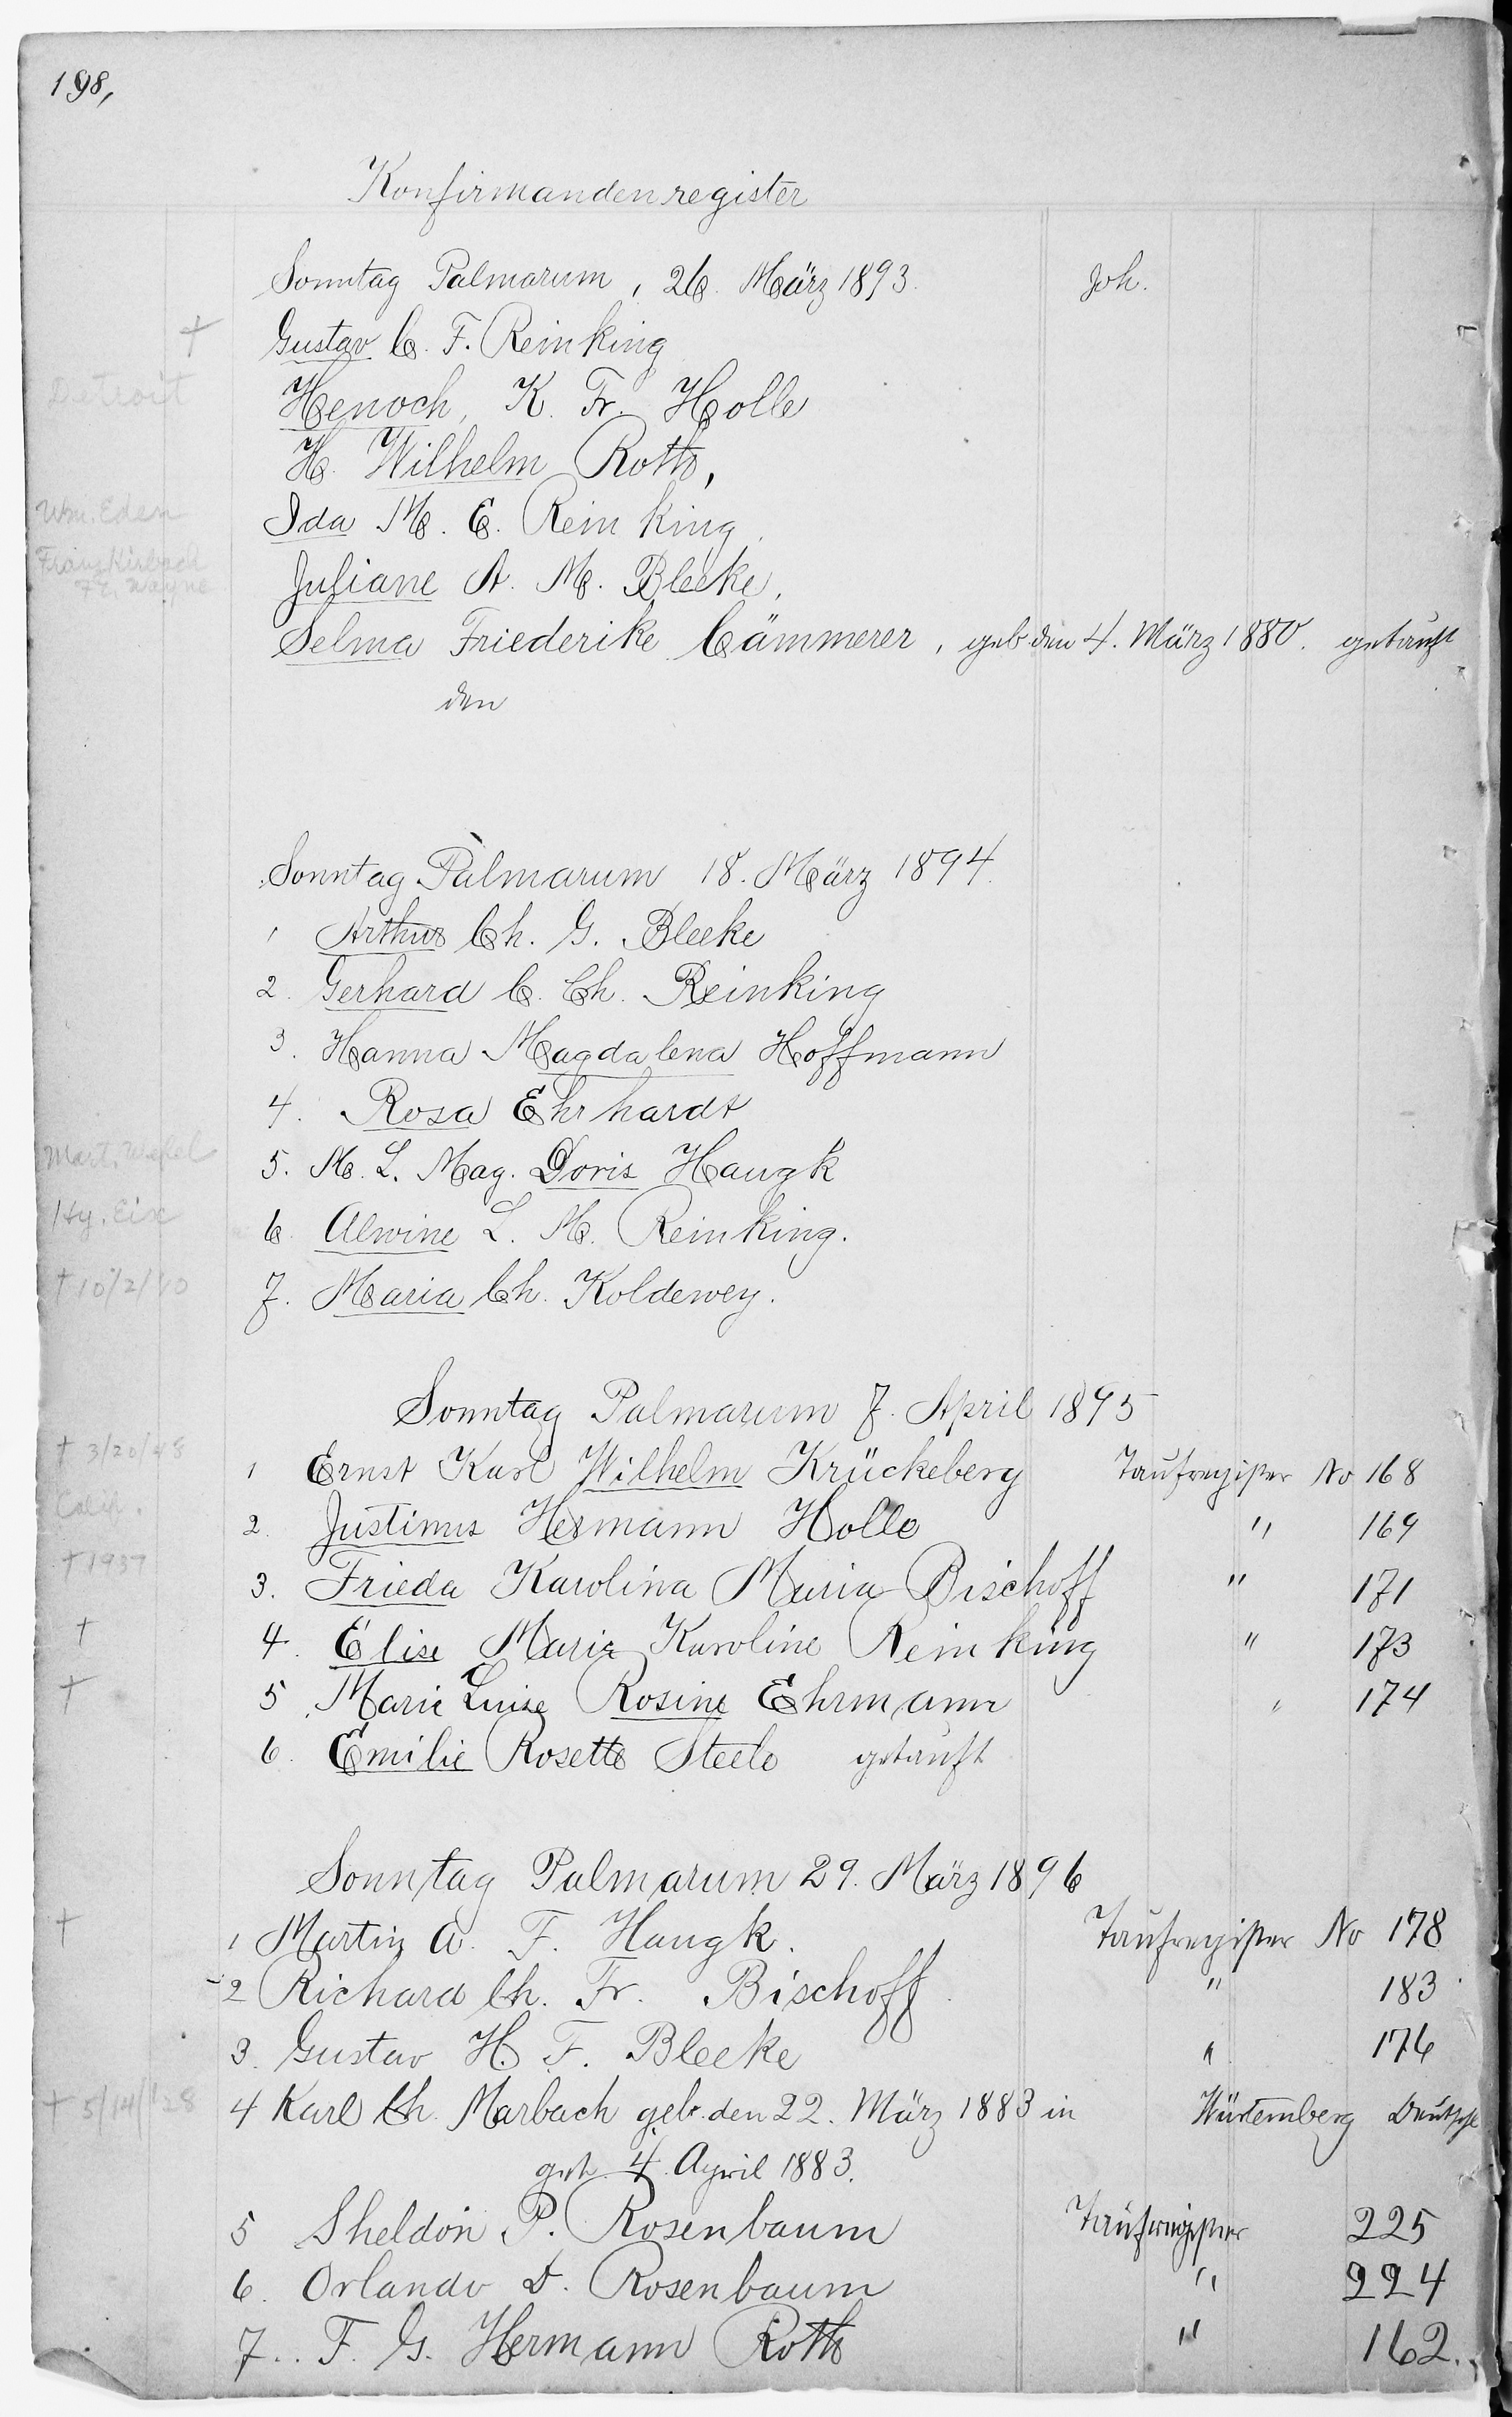 198,
Konfirmandenregister
Sonntag Palmarum, 26. März 1893. Joh.
† Gustav C. F. Reinking
Detroit Henoch, K. Fr. Holle
H. Wilhelm Roth,
Wm. Eden Ida M. E. Reinking.
Franz Kirbach Ft. Wayne Juliane A. M. Bleeke.
Selma Friederike Cämmerer, geb den 4. März 1880. getauft
den
Sonntag Palmarum 18. März 1894.
1 Arthur Ch. G. Bleeke
2. Gerhard C. Ch. Reinking
3. Hanna Magdalena Hoffmann
4. Rosa Ehrhardt
Mart. 5. M. L. Mag. Doris Haugk
Hy. Eix 6. Alwine L. M. Reinking.
† 10/2/10 7. Maria Ch. Koldewey.
Sonntag Palmarum 7. April 1895
† 3/20/48 1 Ernst Karl Wilhelm Krückeberg Taufregister No 168
Calif. 2. Justinus Hermann Holle " 169
† 1937 3. Frieda Karolina Maria Bischoff " 171
† 4. Elise Marie Karoline Reinking " 173
† 5 Marie Luise Rosine Ehrmann " 174
6. Emilie Rosette Steele getauft
Sonntag Palmarum 29. März 1896
† 1 Martin A. F. Haugk. Taufregister No 178
2 Richard Ch. Fr. Bischoff. " 183
3. Gustav H. F. Bleeke " 176
† 5/14/28 4 Karl Ch. Marbach geb. den 22. März 1883 in Würtemberg Deutschl
get. 4. April 1883.
5 Sheldon P. Rosenbaum Taufregister 225
6. Orlando D. Rosenbaum " 224
7.. F. G. Hermann Roth " 162.